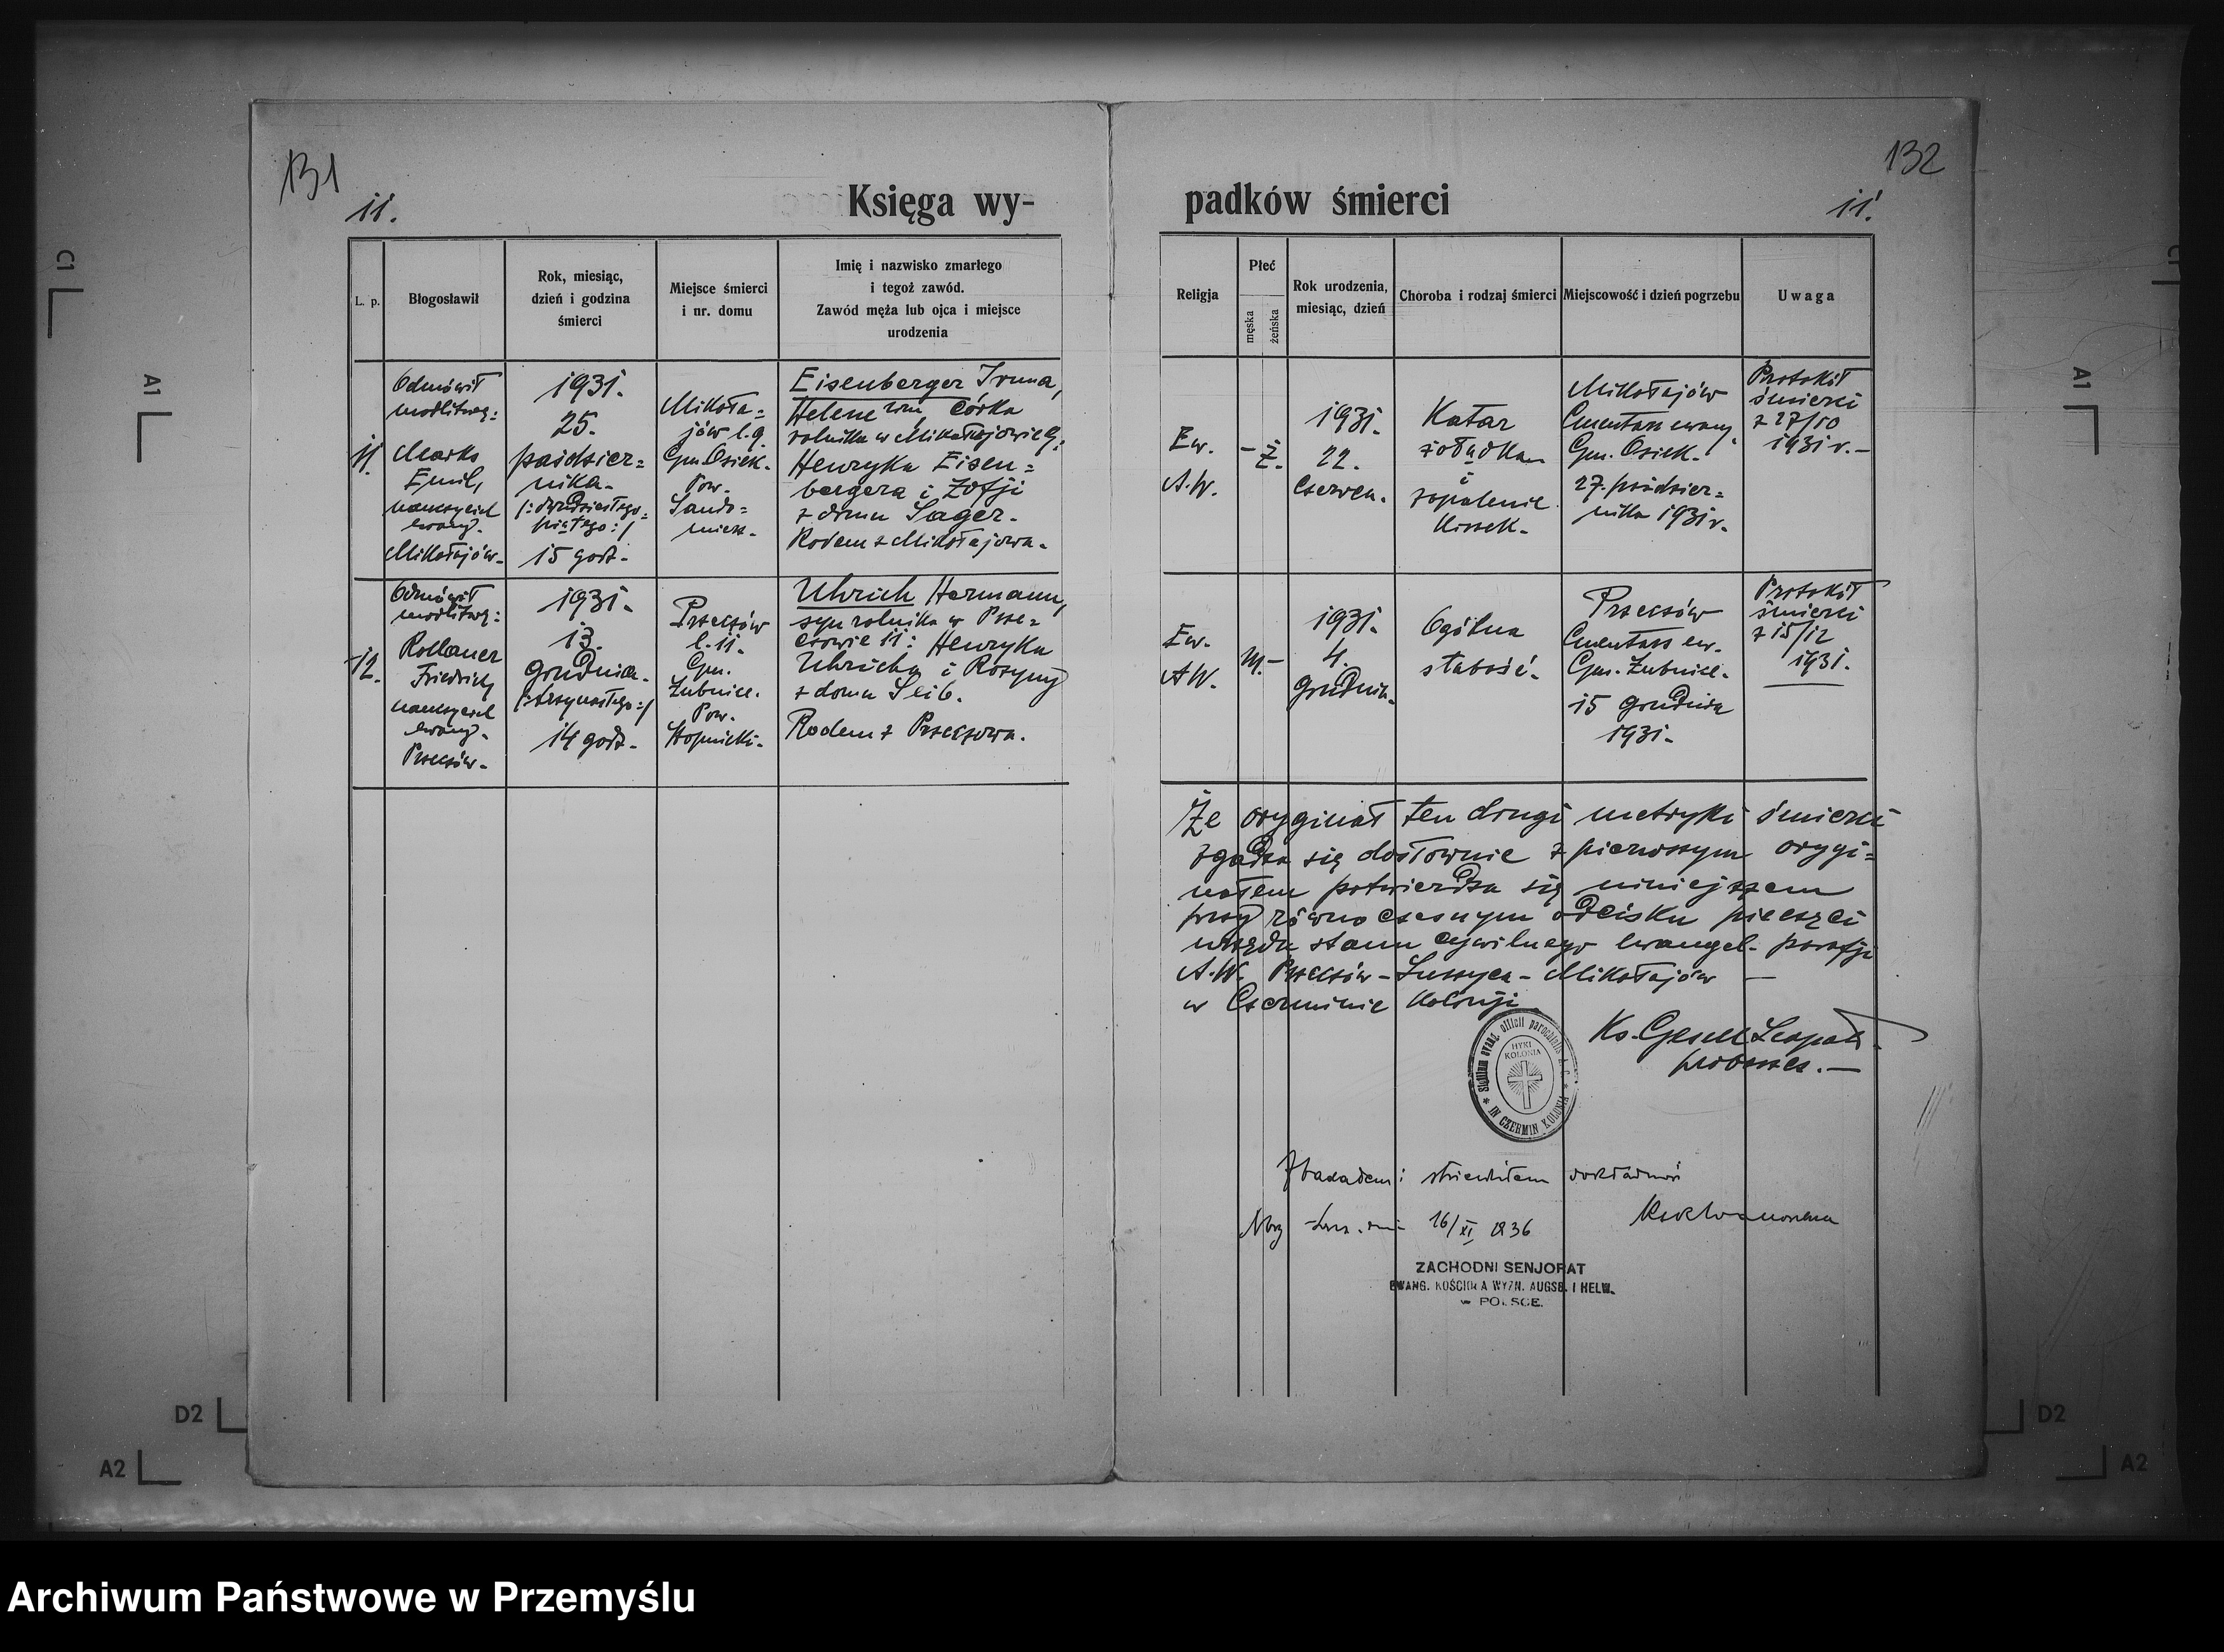 131
132
11.
Księga wy-
padków śmierci
11.
L. p.
Błogosławił
Rok, miesiąc,
dzień i godzina
śmierci
Miejsce śmierci
i nr. domu
Imię i nazwisko zmarłego
i tegoż zawód.
Zawód męża lub ojca i miejsce
urodzenia
Religja
Płeć
męska
żeńska
Rok urodzenia,
miesiąc, dzień
Choroba i rodzaj śmierci
Miejscowość i dzień pogrzebu
Uwaga
11.
Odmówił
modlitwę:
Marks
Emil,
nauczyciel
ewang.
Mikołajów.
1931.
25.
paździer=
nika.
/: dwudziestego=
piątego :/
15 godz.
Mikoła=
jów l. 9.
Gm. Osiek.
Pow.
Sando=
miers.
Eisenberger Irma,
Helene, córka
rolnika w Mikołajowie 9:
Henryka Eisen=
bergera i Zofji
z domu Sager.
Rodem z Mikołajowa.
Ew.
A.W.
- Ż.
1931.
22.
Czerwca.
Katar
żołądka
i
zapalenie
kiszek.
Mikołajów
Cmentarz ewang.
Gm. Osiek.
27. paździer=
nika 1931 r.
Protokół
śmierci
z 27/10
1931 r. -
12.
Odmówił
modlitwę:
Rollauer
Friedrich
nauczyciel
ewang.
Przeczów.
1931.
13.
grudnia.
/: trzynastego :/
14 godz.
Przeczów
l. 11.
Gm.
Łubnice.
Pow.
Stopnicki.
Uhrich Hermann,
syn rolnika w Prze=
czowie 11: Henryka
Uhricha i Rozyny
z domu Seib.
Rodem z Przeczowa.
Ew.
AW.
m. -
1931.
4.
grudnia.
Ogólna
słabość.
Przeczów
Cmentarz ew.
Gm. Łubnice.
15 grudnia
1931.
Protokół
śmierci
z 15/12
1931.
Że oryginał ten drugi metryki śmierci
zgadza się dosłownie z pierwszym orygi=
nałem potwierdza się niniejszem
przy równoczesnym odcisku pieczęci
urzędu stanu cywilnego ewangel. parafji
A.W. Przeczów - - Mikołajów -
w Czerminie Kolonji
Ks. Gesell Leopold
proboszcz. -
Sigillum evang. officii parochialis A. C.
HYKI
KOLONIA
* IN CZERMIN KOLONIA *
Zbadałem i stwierdziłem dokładność
16/XI 1936
ZACHODNI SENJORAT
EWANG. KOŚCIOŁA WYZN. AUGSB. I HELW.
w POLSCE.
C1
A1
D2
A2
C1
A1
D2
A2
Archiwum Państwowe w Przemyślu